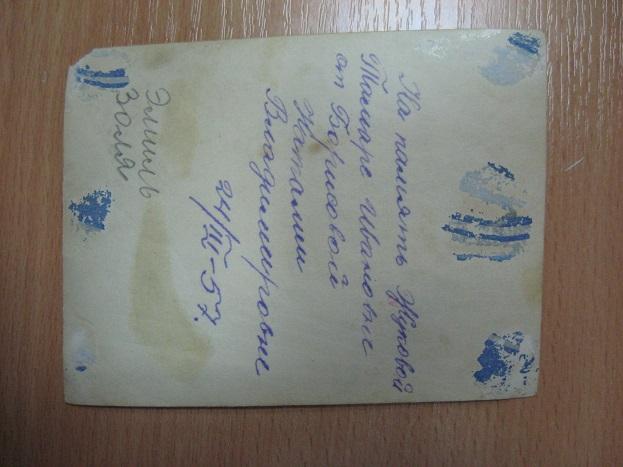 На память Журовой
Тамаре Ивановне
от Борисовой
Наталии
Владимировне
24/II-57.
Эмиль
Золя